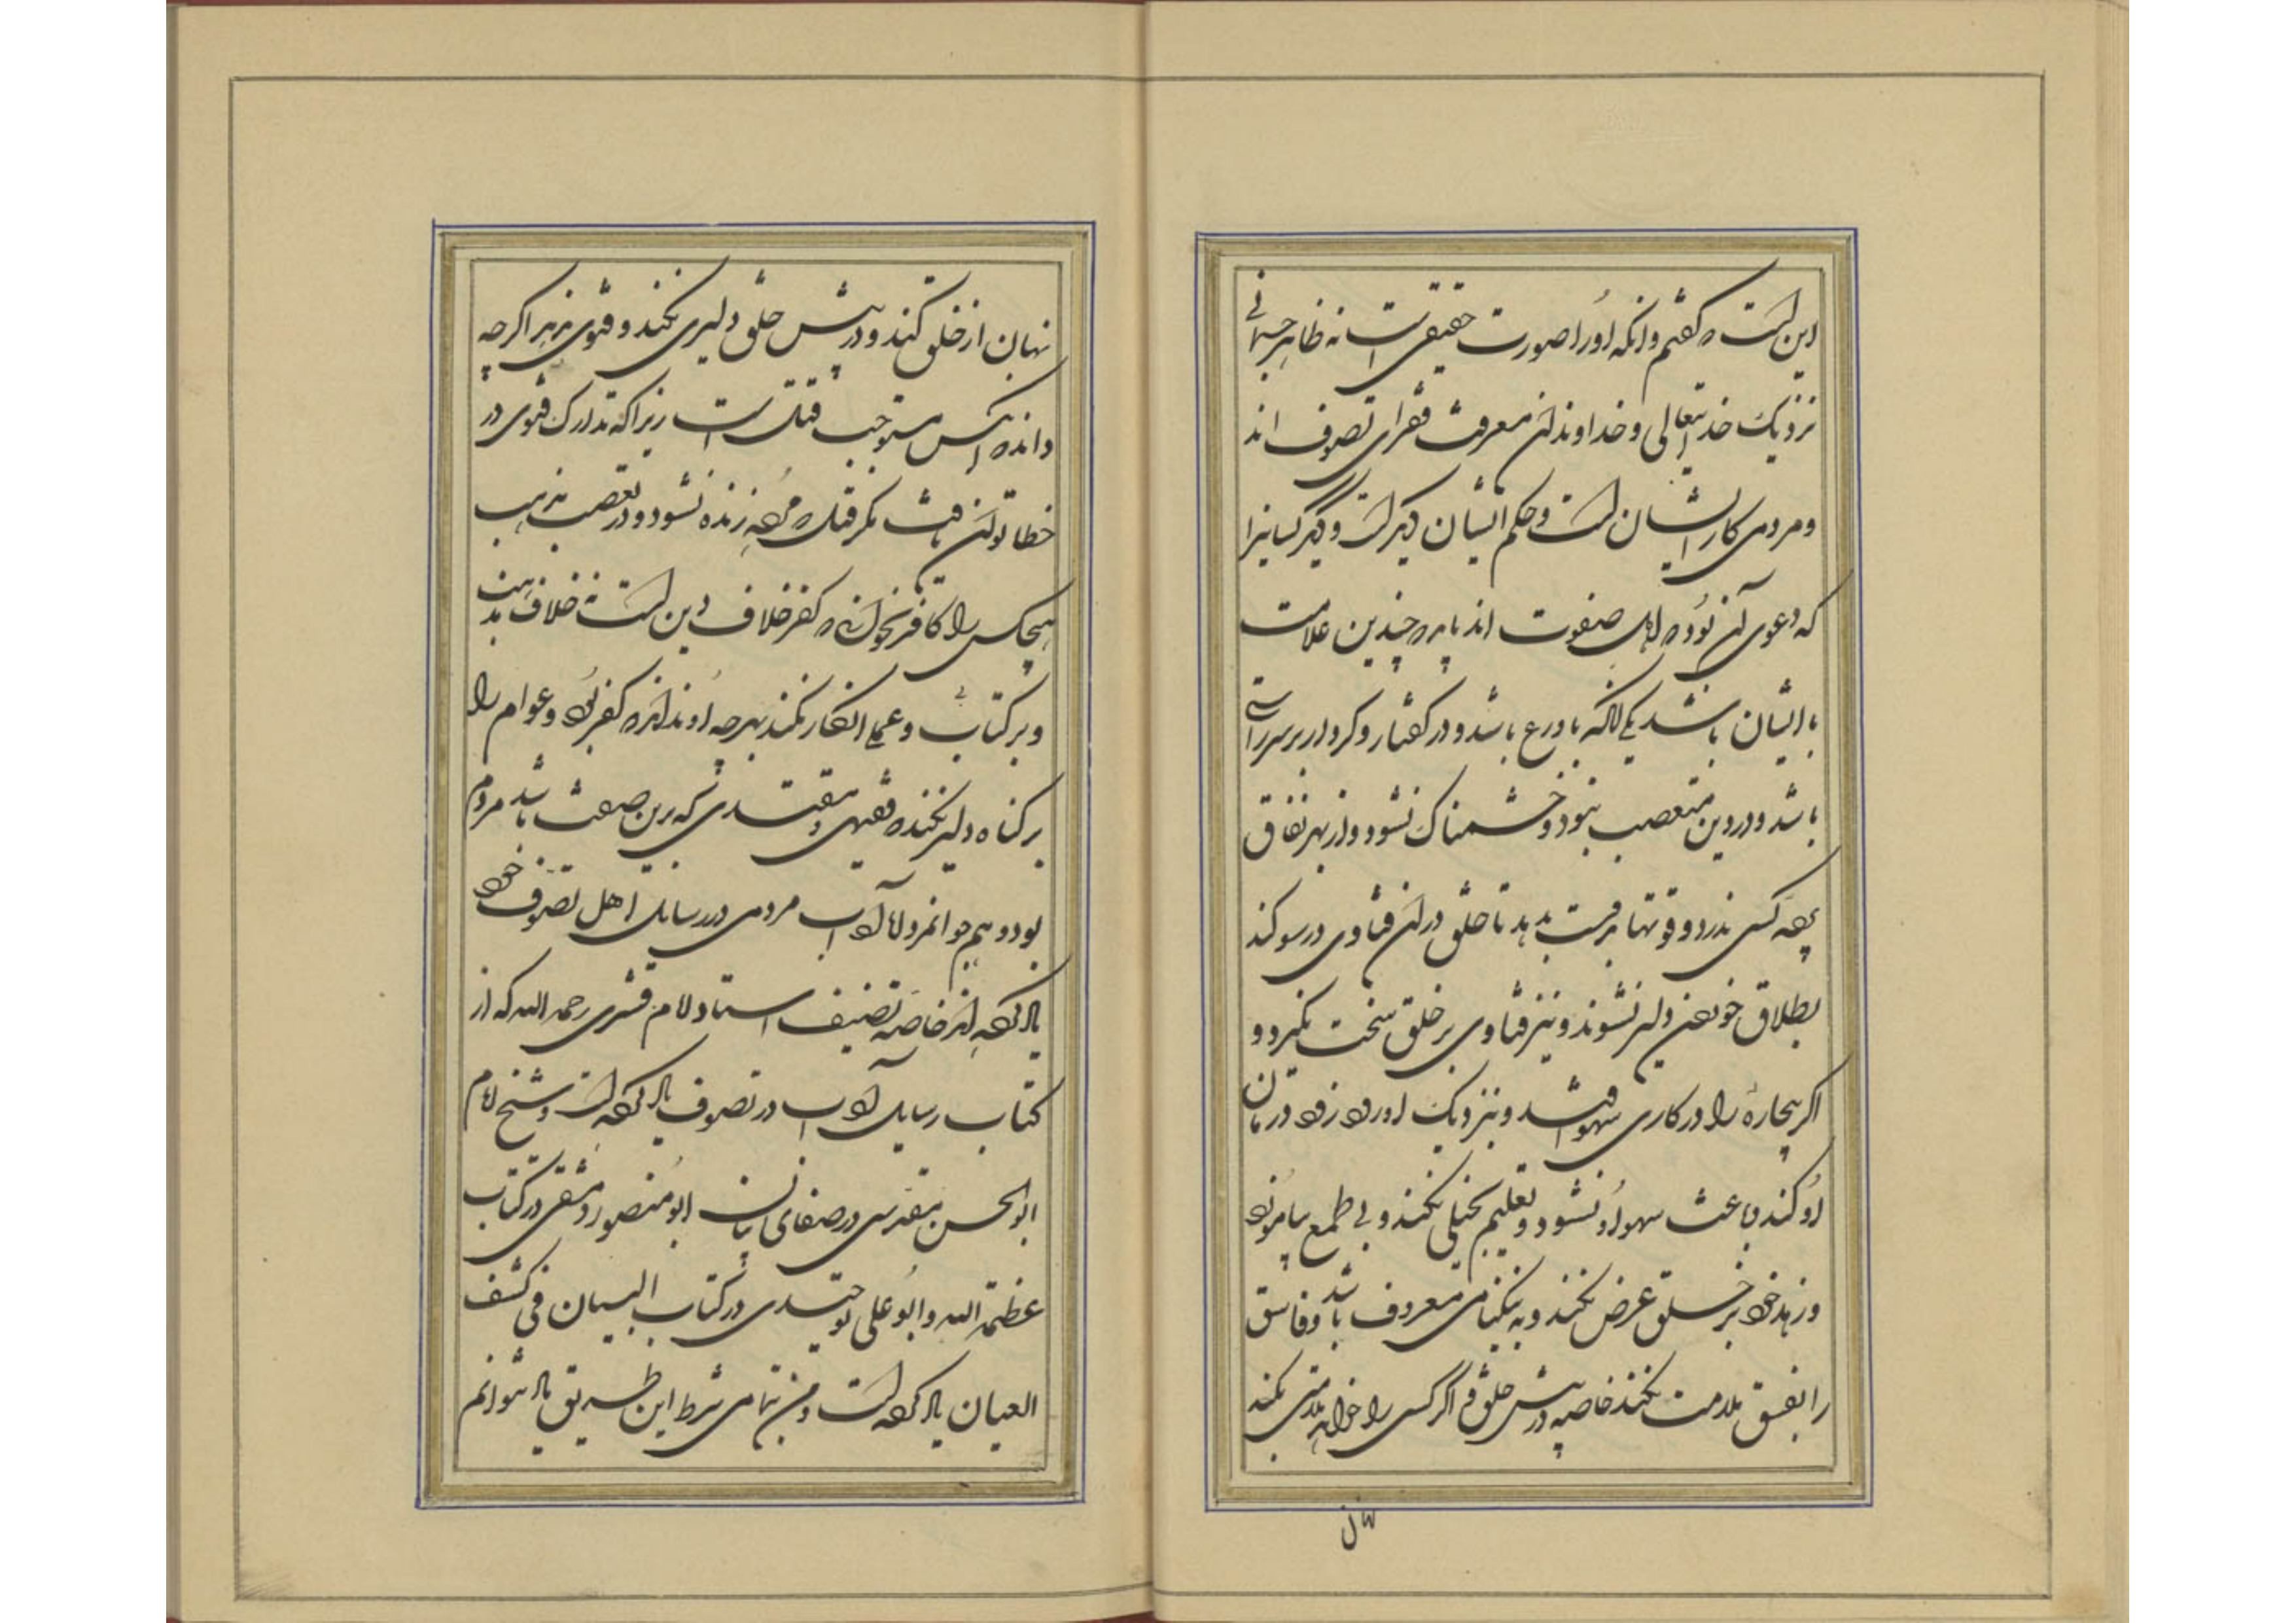 این است که گفتیم و آنکه او را صورت حقیقی است نه ظاهر جسمانی
نزدیک خدایتعالی و خداوندان معرفت فقرای تصوف اند
و مردمی کار ایشان است و حکم ایشان دیگر است و دیگر کسانیرا
که دعوی آن بود که اهل صفوت اند باید که چندین علامت
با ایشان باشد یکی آنکه با ورع باشد و در گفتار و کردار بر سر راستی
باشد و در دین متعصب نبود و خشمناک نشود و از بهر نفاق
کسی ندرد و قوتها برخصت بدهد تا خلق در آن فتاوی در سوکند
بطلاق خوردن دلیر نشوند و نیز فتاوی بر خلق سخت نگیرد و
اگر بیچارهٔ را در کاری سهو افتد و بنزدیک او رود زود درمان
او کند باعث سهو او نشود و تعلیم بخیلی نکند و بی طمع بیاموزد
و زهد خود بر خلق عرض نکند و به نیکنامی معروف باشد و فاسق
را بفسق ملامت نکند خاصه در پیش خلق و اگر کسی را خواهد ملامتی بکند
نهان
نهان از خلق کند و در پیش خلق دلیری نکند و فتوی اگر چه
داند که آنکس مستوجب قتل است زیرا که تدارک فتوی در
خطا توان یافت مگر قتل که مرده زنده نشود و در تعصب مذهب
هیچکس را کافر نخواند که کفر خلاف دین است نه خلاف مذهب
و بر کتاب و علمی انکار نکند هر چه او نداند که کفر بود و عوام را
بر گناه دلیر نکند که فقیهی و مقتدی که برین صفت باشد مردم
بود و هم جوانمرد اما آداب مردمی در رسایل اهل تصوف خود
یاد کرده اند خاصه تصنیف استاد امام قشری رحمه الله که از
کتاب رسایل آداب در تصوف یاد کرده است و شیخ امام
ابوالحسن مقدسی در صفای ابو منصور دمشقی در کتاب
عظمة الله و ابو علی در کتاب البیان فی کشف
العیان یاد کرده است و من تمامی شرط این طریق یاد نتوانم